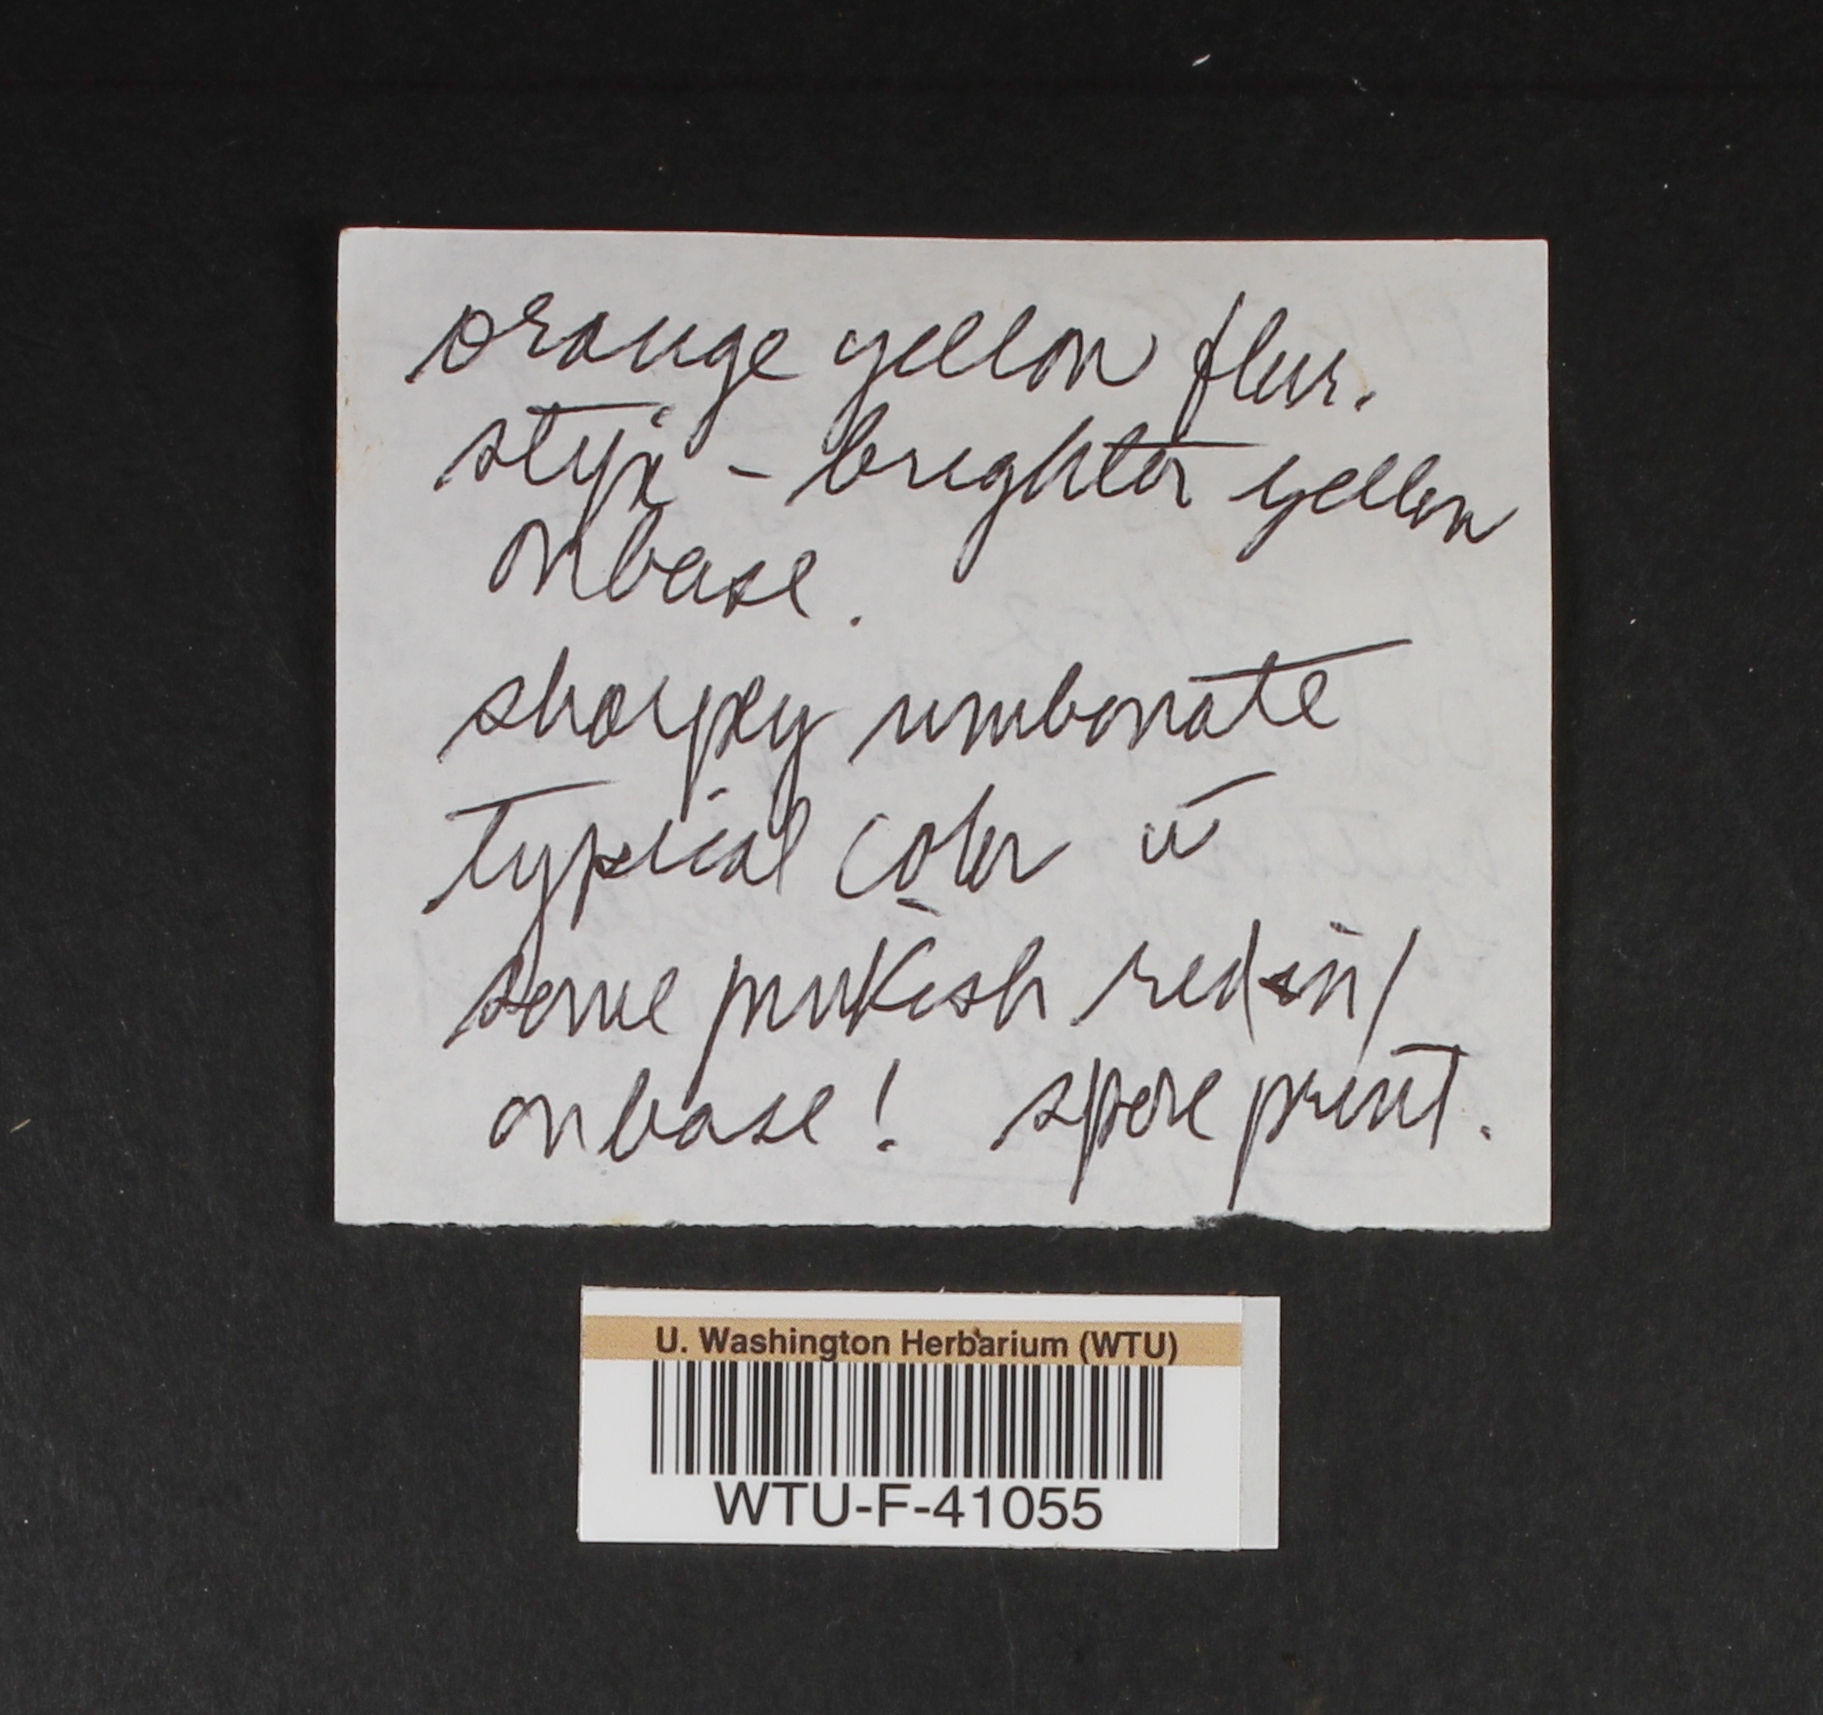 orange yellow fluor.
stipe – brighter yellow
on base.
sharply umbonate
typical color w̄
some pinkish red in/
on base! spore print.
U. Washington Herbarium (WTU)
WTU-F-41055